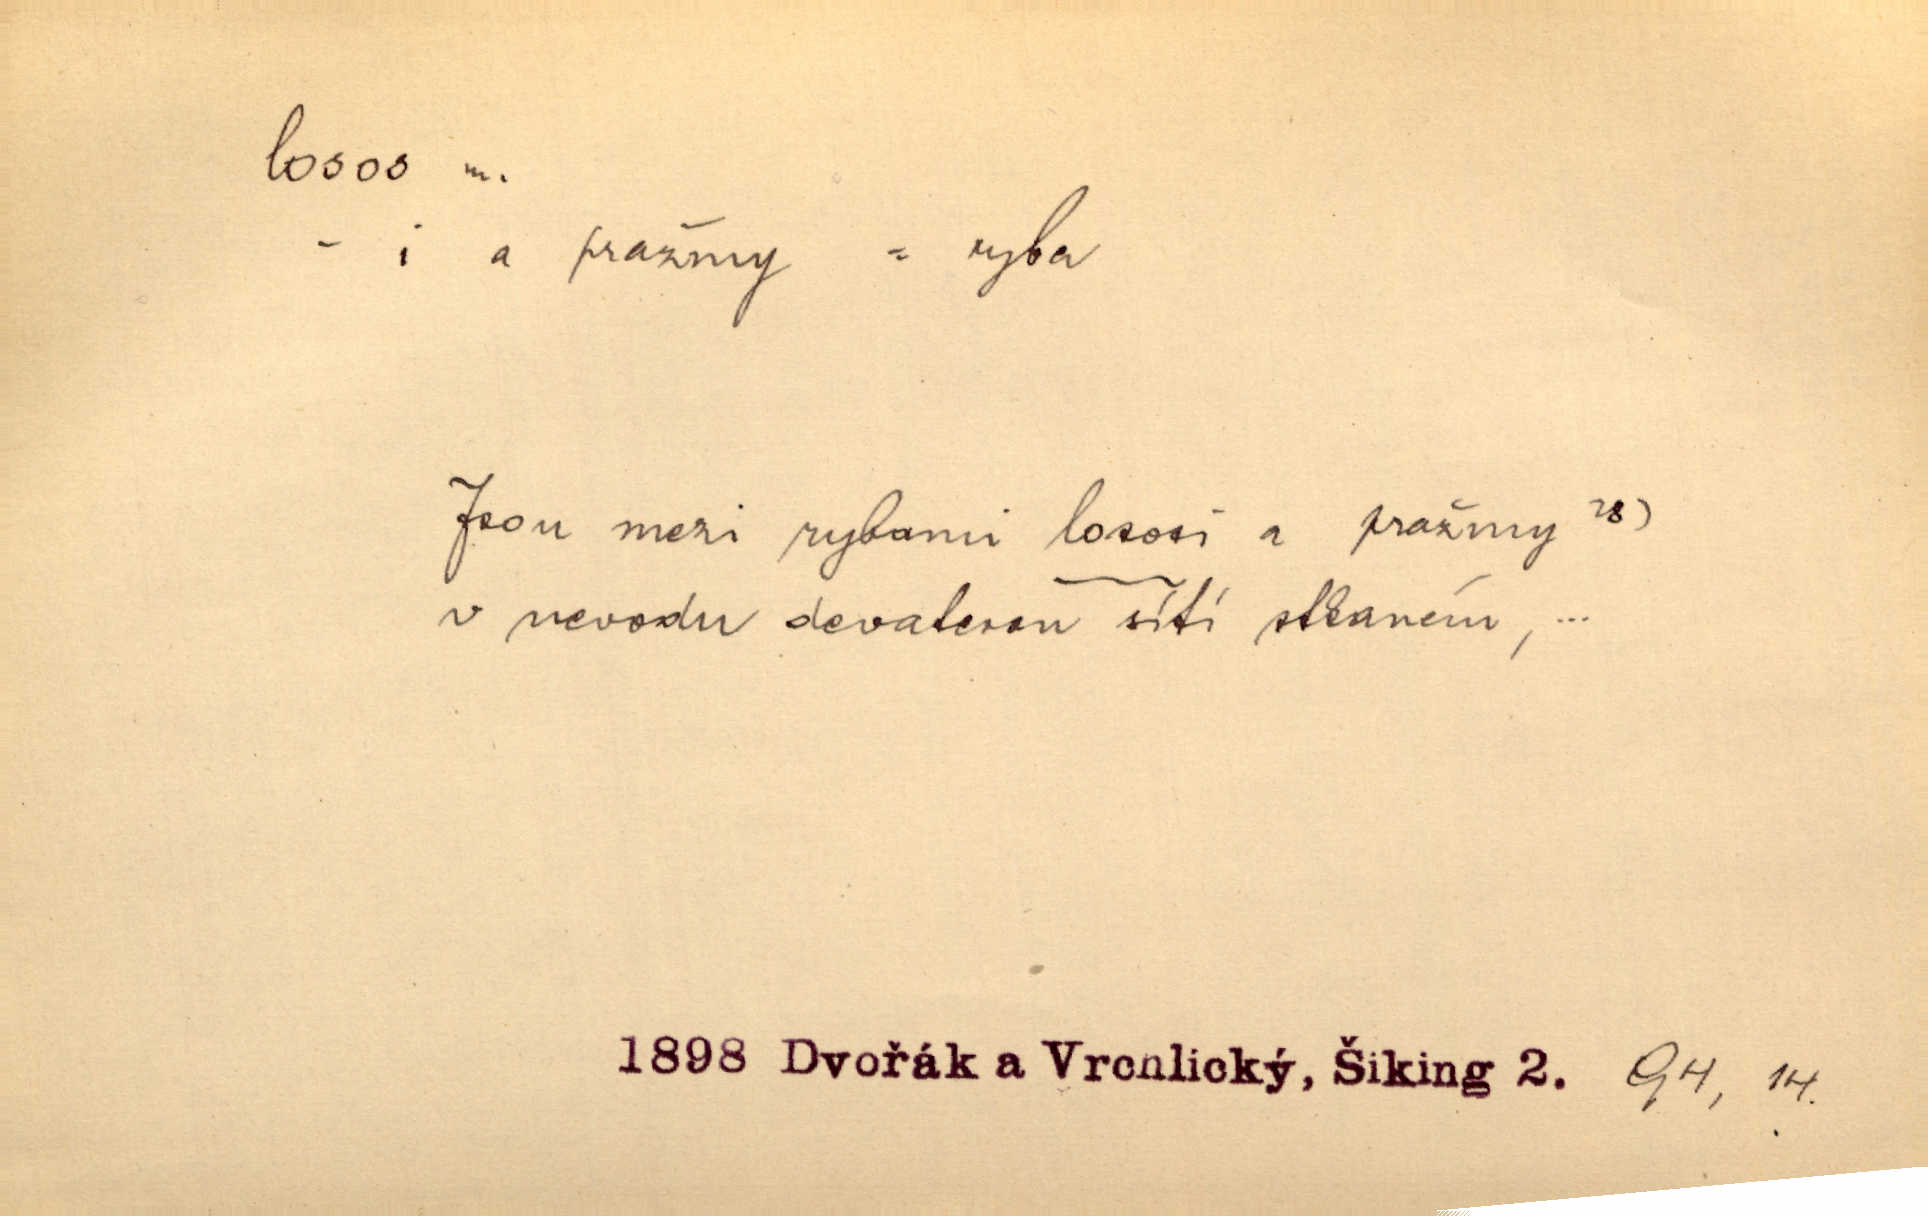 losos m.
- i a pražmy = ryba
Jsou mezi rybami lososi a pražmy 28)
v nevodu devaterou sítí stkaném, ...
1898 Dvořák a Vrchlický, Šiking 2. 94, 14.